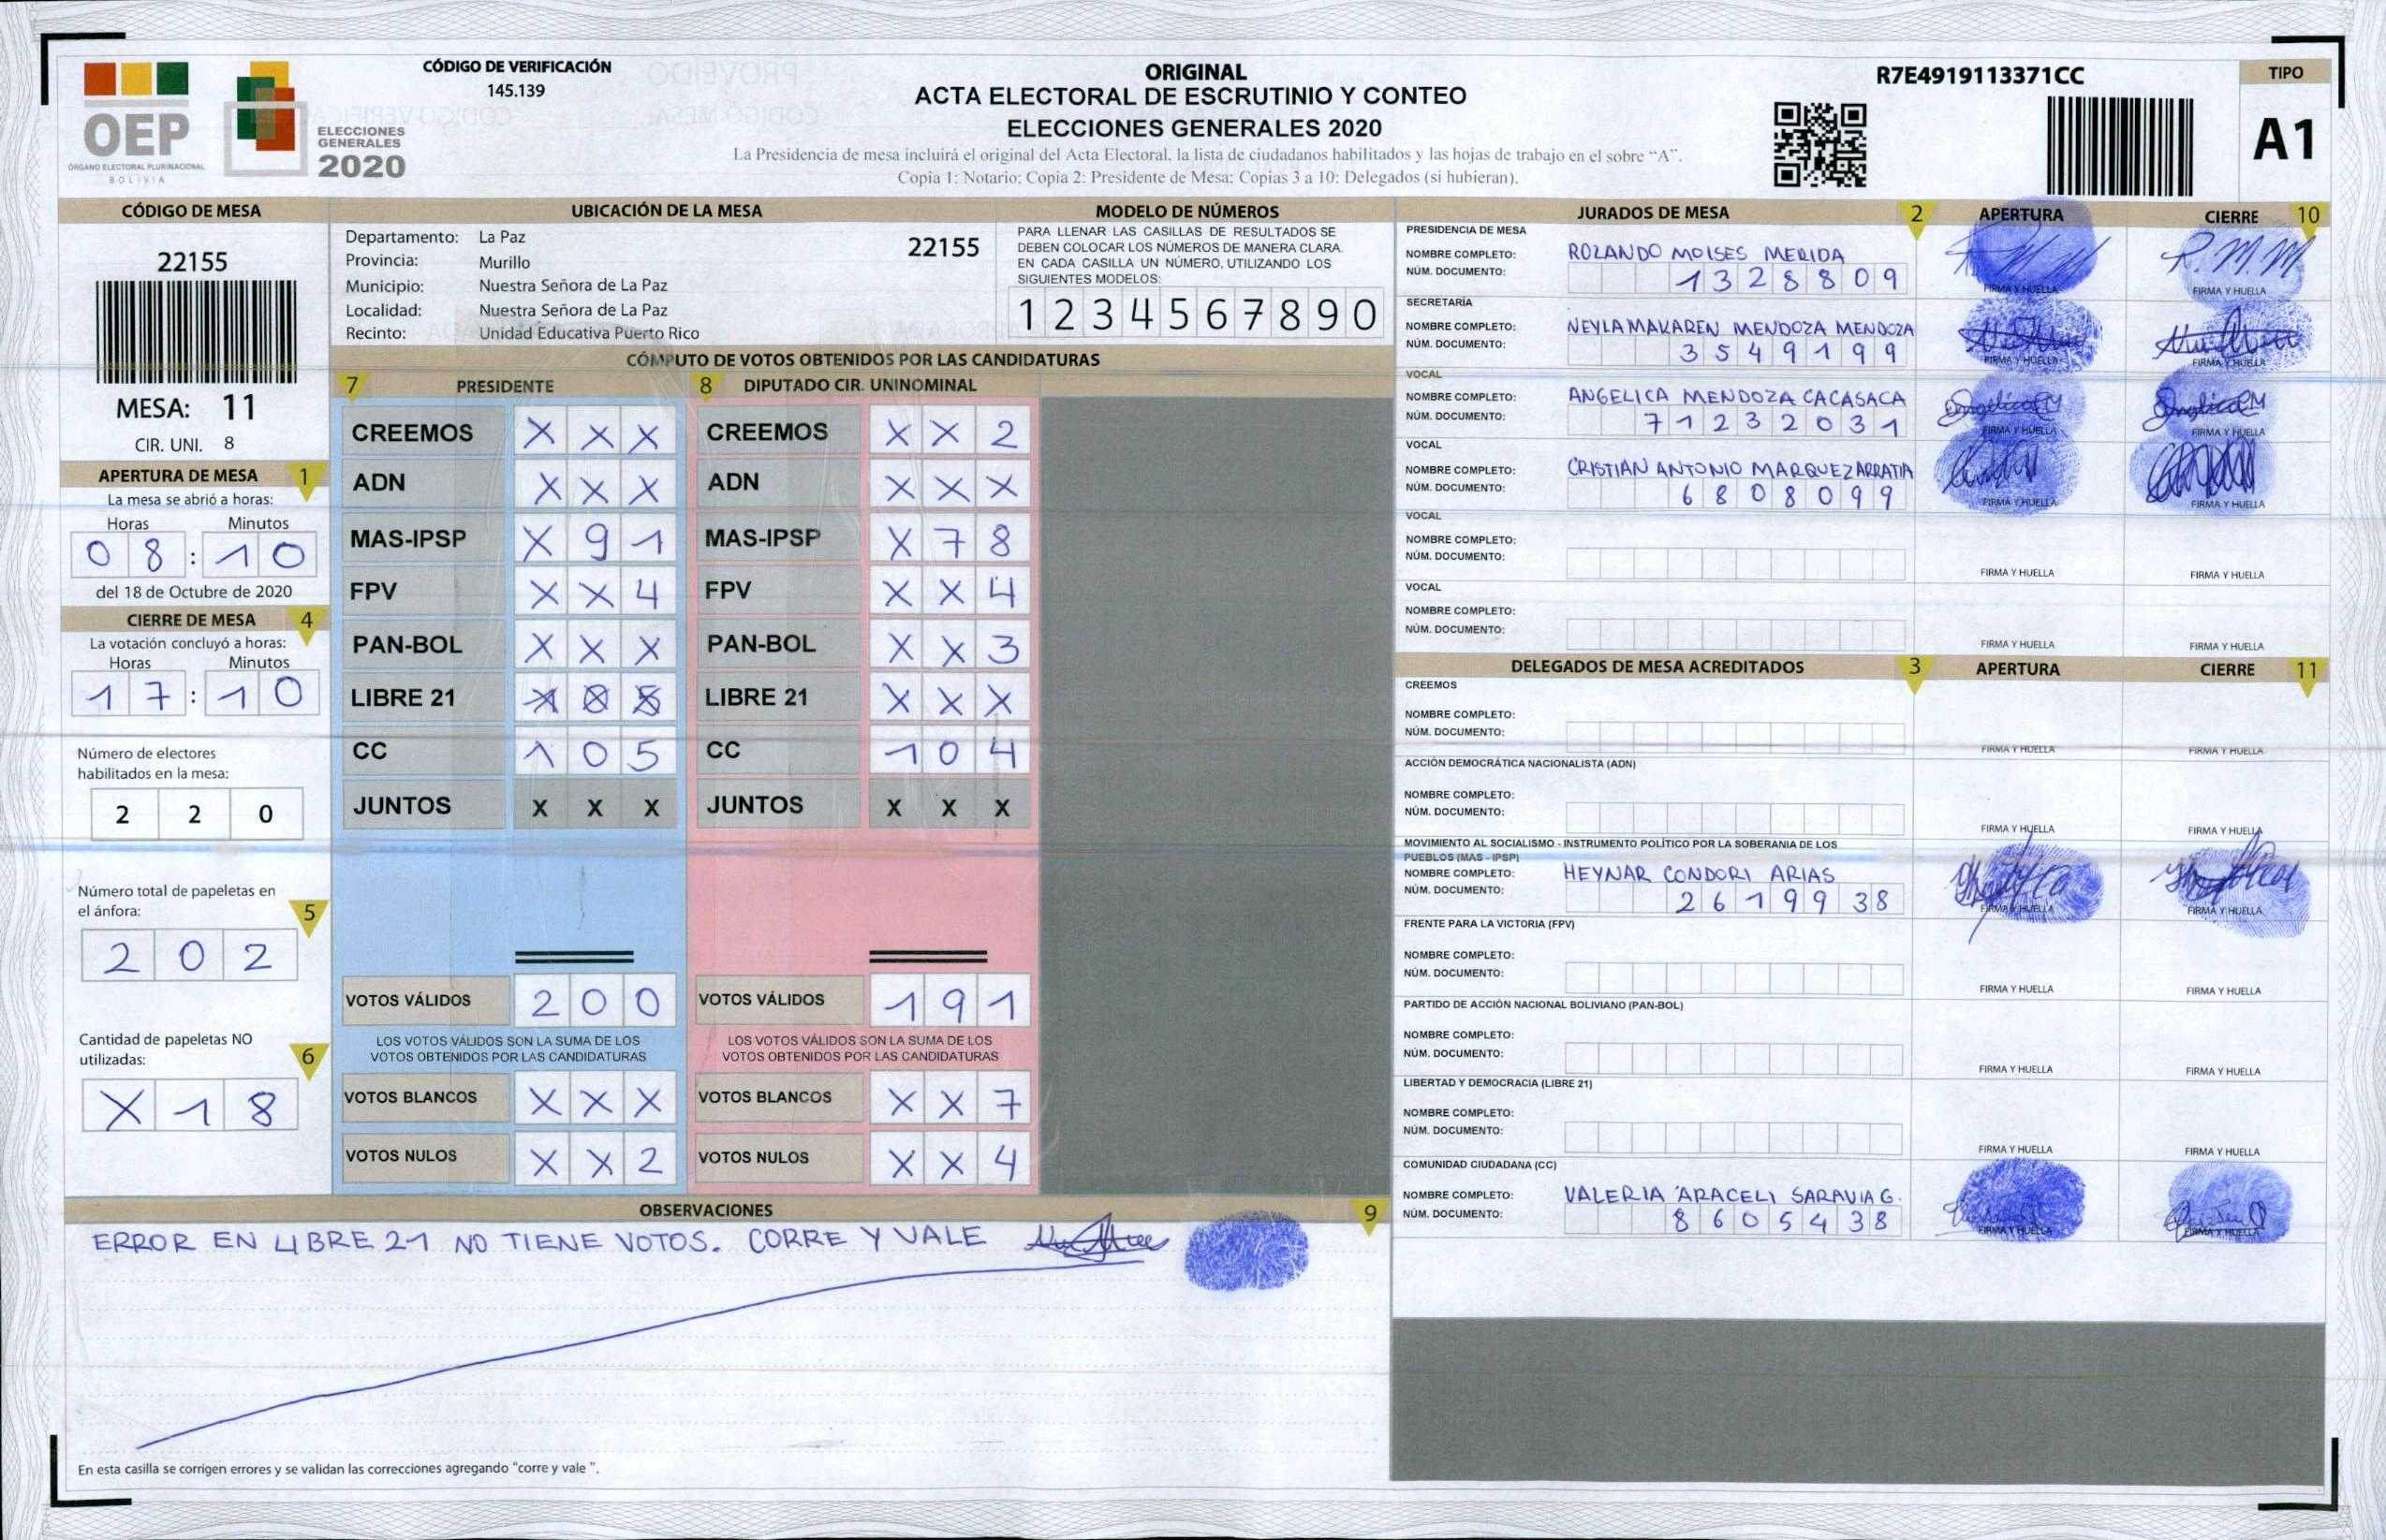 OEP
ÓRGANO ELECTORAL PLURINACIONAL
BOLIVIA
ELECCIONES
GENERALES
2020
CÓDIGO DE VERIFICACIÓN
145.139
ORIGINAL
ACTA ELECTORAL DE ESCRUTINIO Y CONTEO
ELECCIONES GENERALES 2020
La Presidencia de mesa incluirá el original del Acta Electoral, la lista de ciudadanos habilitados y las hojas de trabajo en el sobre “A”.
Copia 1: Notario; Copia 2: Presidente de Mesa; Copias 3 a 10: Delegados (si hubieran).
R7E4919113371CC
TIPO
A1
CÓDIGO DE MESA
22155
MESA: 11
CIR. UNI. 8
APERTURA DE MESA 1
La mesa se abrió a horas:
Horas Minutos
0 8 : 1 0
del 18 de Octubre de 2020
CIERRE DE MESA 4
La votación concluyó a horas:
Horas Minutos
1 7 : 1 0
Número de electores
habilitados en la mesa:
2 2 0
Número total de papeletas en
el ánfora: 5
2 0 2
Cantidad de papeletas NO
utilizadas: 6
X 1 8
UBICACIÓN DE LA MESA
Departamento: La Paz 22155
Provincia: Murillo
Municipio: Nuestra Señora de La Paz
Localidad: Nuestra Señora de La Paz
Recinto: Unidad Educativa Puerto Rico
MODELO DE NÚMEROS
PARA LLENAR LAS CASILLAS DE RESULTADOS SE
DEBEN COLOCAR LOS NÚMEROS DE MANERA CLARA.
EN CADA CASILLA UN NÚMERO, UTILIZANDO LOS
SIGUIENTES MODELOS:
1 2 3 4 5 6 7 8 9 0
CÓMPUTO DE VOTOS OBTENIDOS POR LAS CANDIDATURAS
7 PRESIDENTE 8 DIPUTADO CIR. UNINOMINAL
CREEMOS X X X CREEMOS X X 2
ADN X X X ADN X X X
MAS-IPSP X 9 1 MAS-IPSP X 7 8
FPV X X 4 FPV X X 4
PAN-BOL X X X PAN-BOL X X 3
LIBRE 21 LIBRE 21 X X X
CC 1 0 5 CC 1 0 4
JUNTOS X X X JUNTOS X X X
VOTOS VÁLIDOS 2 0 0 VOTOS VÁLIDOS 1 9 1
LOS VOTOS VÁLIDOS SON LA SUMA DE LOS LOS VOTOS VÁLIDOS SON LA SUMA DE LOS
VOTOS OBTENIDOS POR LAS CANDIDATURAS VOTOS OBTENIDOS POR LAS CANDIDATURAS
VOTOS BLANCOS X X X VOTOS BLANCOS X X 7
VOTOS NULOS X X 2 VOTOS NULOS X X 4
OBSERVACIONES 9
ERROR EN LIBRE 21 NO TIENE VOTOS. CORRE Y VALE
En esta casilla se corrigen errores y se validan las correcciones agregando "corre y vale ".
JURADOS DE MESA 2 APERTURA CIERRE 10
PRESIDENCIA DE MESA
NOMBRE COMPLETO: ROLANDO MOISES MERIDA
NÚM. DOCUMENTO: 1 3 2 8 8 0 9
R.M.M
FIRMA Y HUELLA FIRMA Y HUELLA
SECRETARÍA
NOMBRE COMPLETO: NEYLA MAKAREN MENDOZA MENDOZA
NÚM. DOCUMENTO: 3 5 4 9 1 9 9
FIRMA Y HUELLA FIRMA Y HUELLA
VOCAL
NOMBRE COMPLETO: ANGELICA MENDOZA CACASACA
NÚM. DOCUMENTO: 7 1 2 3 2 0 3 1
FIRMA Y HUELLA FIRMA Y HUELLA
VOCAL
NOMBRE COMPLETO: CRISTIAN ANTONIO MARQUEZ ARRATIA
NÚM. DOCUMENTO: 6 8 0 8 0 9 9
FIRMA Y HUELLA FIRMA Y HUELLA
VOCAL
NOMBRE COMPLETO:
NÚM. DOCUMENTO:
FIRMA Y HUELLA FIRMA Y HUELLA
VOCAL
NOMBRE COMPLETO:
NÚM. DOCUMENTO:
FIRMA Y HUELLA FIRMA Y HUELLA
DELEGADOS DE MESA ACREDITADOS 3 APERTURA CIERRE 11
CREEMOS
NOMBRE COMPLETO:
NÚM. DOCUMENTO:
FIRMA Y HUELLA FIRMA Y HUELLA
ACCIÓN DEMOCRÁTICA NACIONALISTA (ADN)
NOMBRE COMPLETO:
NÚM. DOCUMENTO:
FIRMA Y HUELLA FIRMA Y HUELLA
MOVIMIENTO AL SOCIALISMO - INSTRUMENTO POLÍTICO POR LA SOBERANIA DE LOS
PUEBLOS (MAS - IPSP)
NOMBRE COMPLETO: HEYNAR CONDORI ARIAS
NÚM. DOCUMENTO: 2 6 1 9 9 3 8
FIRMA Y HUELLA FIRMA Y HUELLA
FRENTE PARA LA VICTORIA (FPV)
NOMBRE COMPLETO:
NÚM. DOCUMENTO:
FIRMA Y HUELLA FIRMA Y HUELLA
PARTIDO DE ACCIÓN NACIONAL BOLIVIANO (PAN-BOL)
NOMBRE COMPLETO:
NÚM. DOCUMENTO:
FIRMA Y HUELLA FIRMA Y HUELLA
LIBERTAD Y DEMOCRACIA (LIBRE 21)
NOMBRE COMPLETO:
NÚM. DOCUMENTO:
FIRMA Y HUELLA FIRMA Y HUELLA
COMUNIDAD CIUDADANA (CC)
NOMBRE COMPLETO: VALERIA ARACELI SARAVIA G.
NÚM. DOCUMENTO: 8 6 0 5 4 3 8
FIRMA Y HUELLA FIRMA Y HUELLA